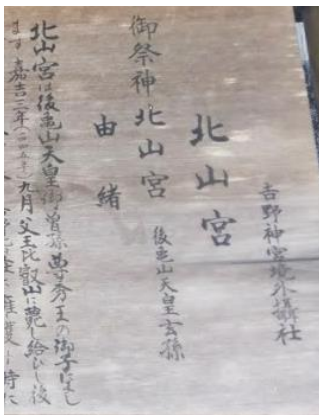 吉野神宮境外攝社
北山宮
御祭神北山宮 後亀山天皇玄孫
由緒
北山宮は後亀山天皇御曽孫尊秀王の御子にまし
ます嘉吉三年 九月父王比叡山に薨じ給ひし後